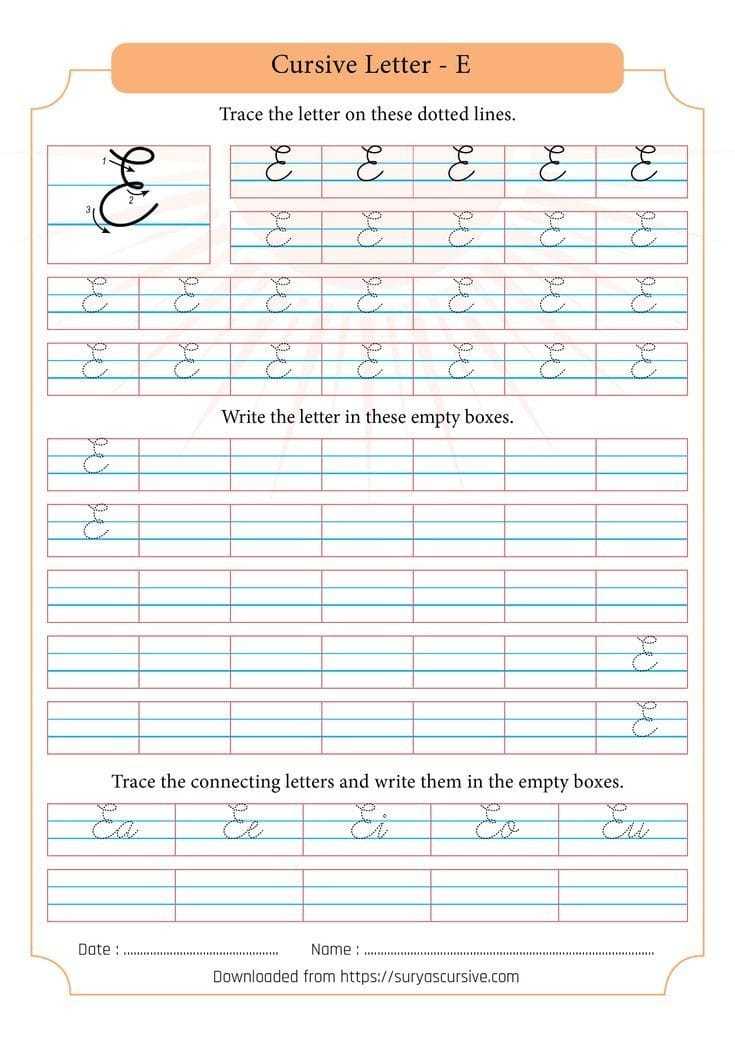 Cursive Letter - E
Trace the letter on these dotted lines.
1
2
3
E
E E E E E
E E E E E
E E E E E E E
E E E E E E E
Write the letter in these empty boxes.
E
E
E
E
Trace the connecting letters and write them in the empty boxes.
Ea Ee Ei Eo Eu
Date : ................................................ Name : ..........................................................................................
Downloaded from https://suryascursive.com